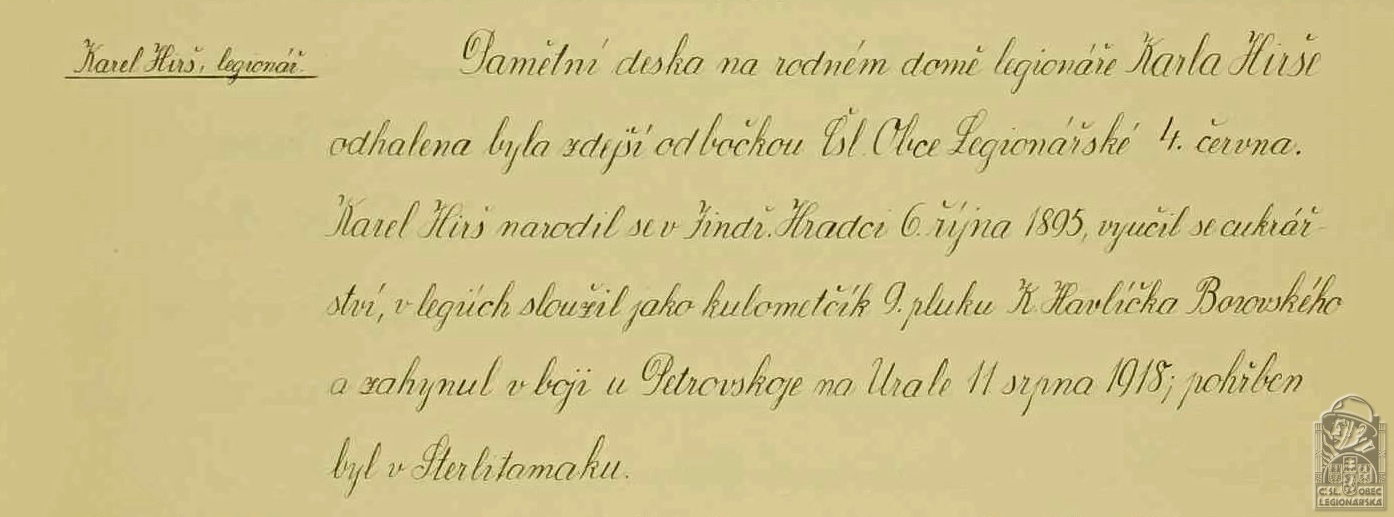 Karel Hirš, legionář.
Pamětní deska na rodném domě legionáře Karla Hirše
odhalena byla zdejší odbočkou Čsl. Obce Legionářské 4. června.
Karel Hirš narodil se v Jindř. Hradci 6. října 1895, vyučil se cukrář-
ství, v legiích sloužil jako kulometčík 9. pluku K. Havlíčka Borovského
a zahynul v boji u Petrovskoje na Urale 11 srpna 1918; pohřben
byl v Sterlitamaku.
ČSL. OBEC
LEGIONÁŘSKÁ